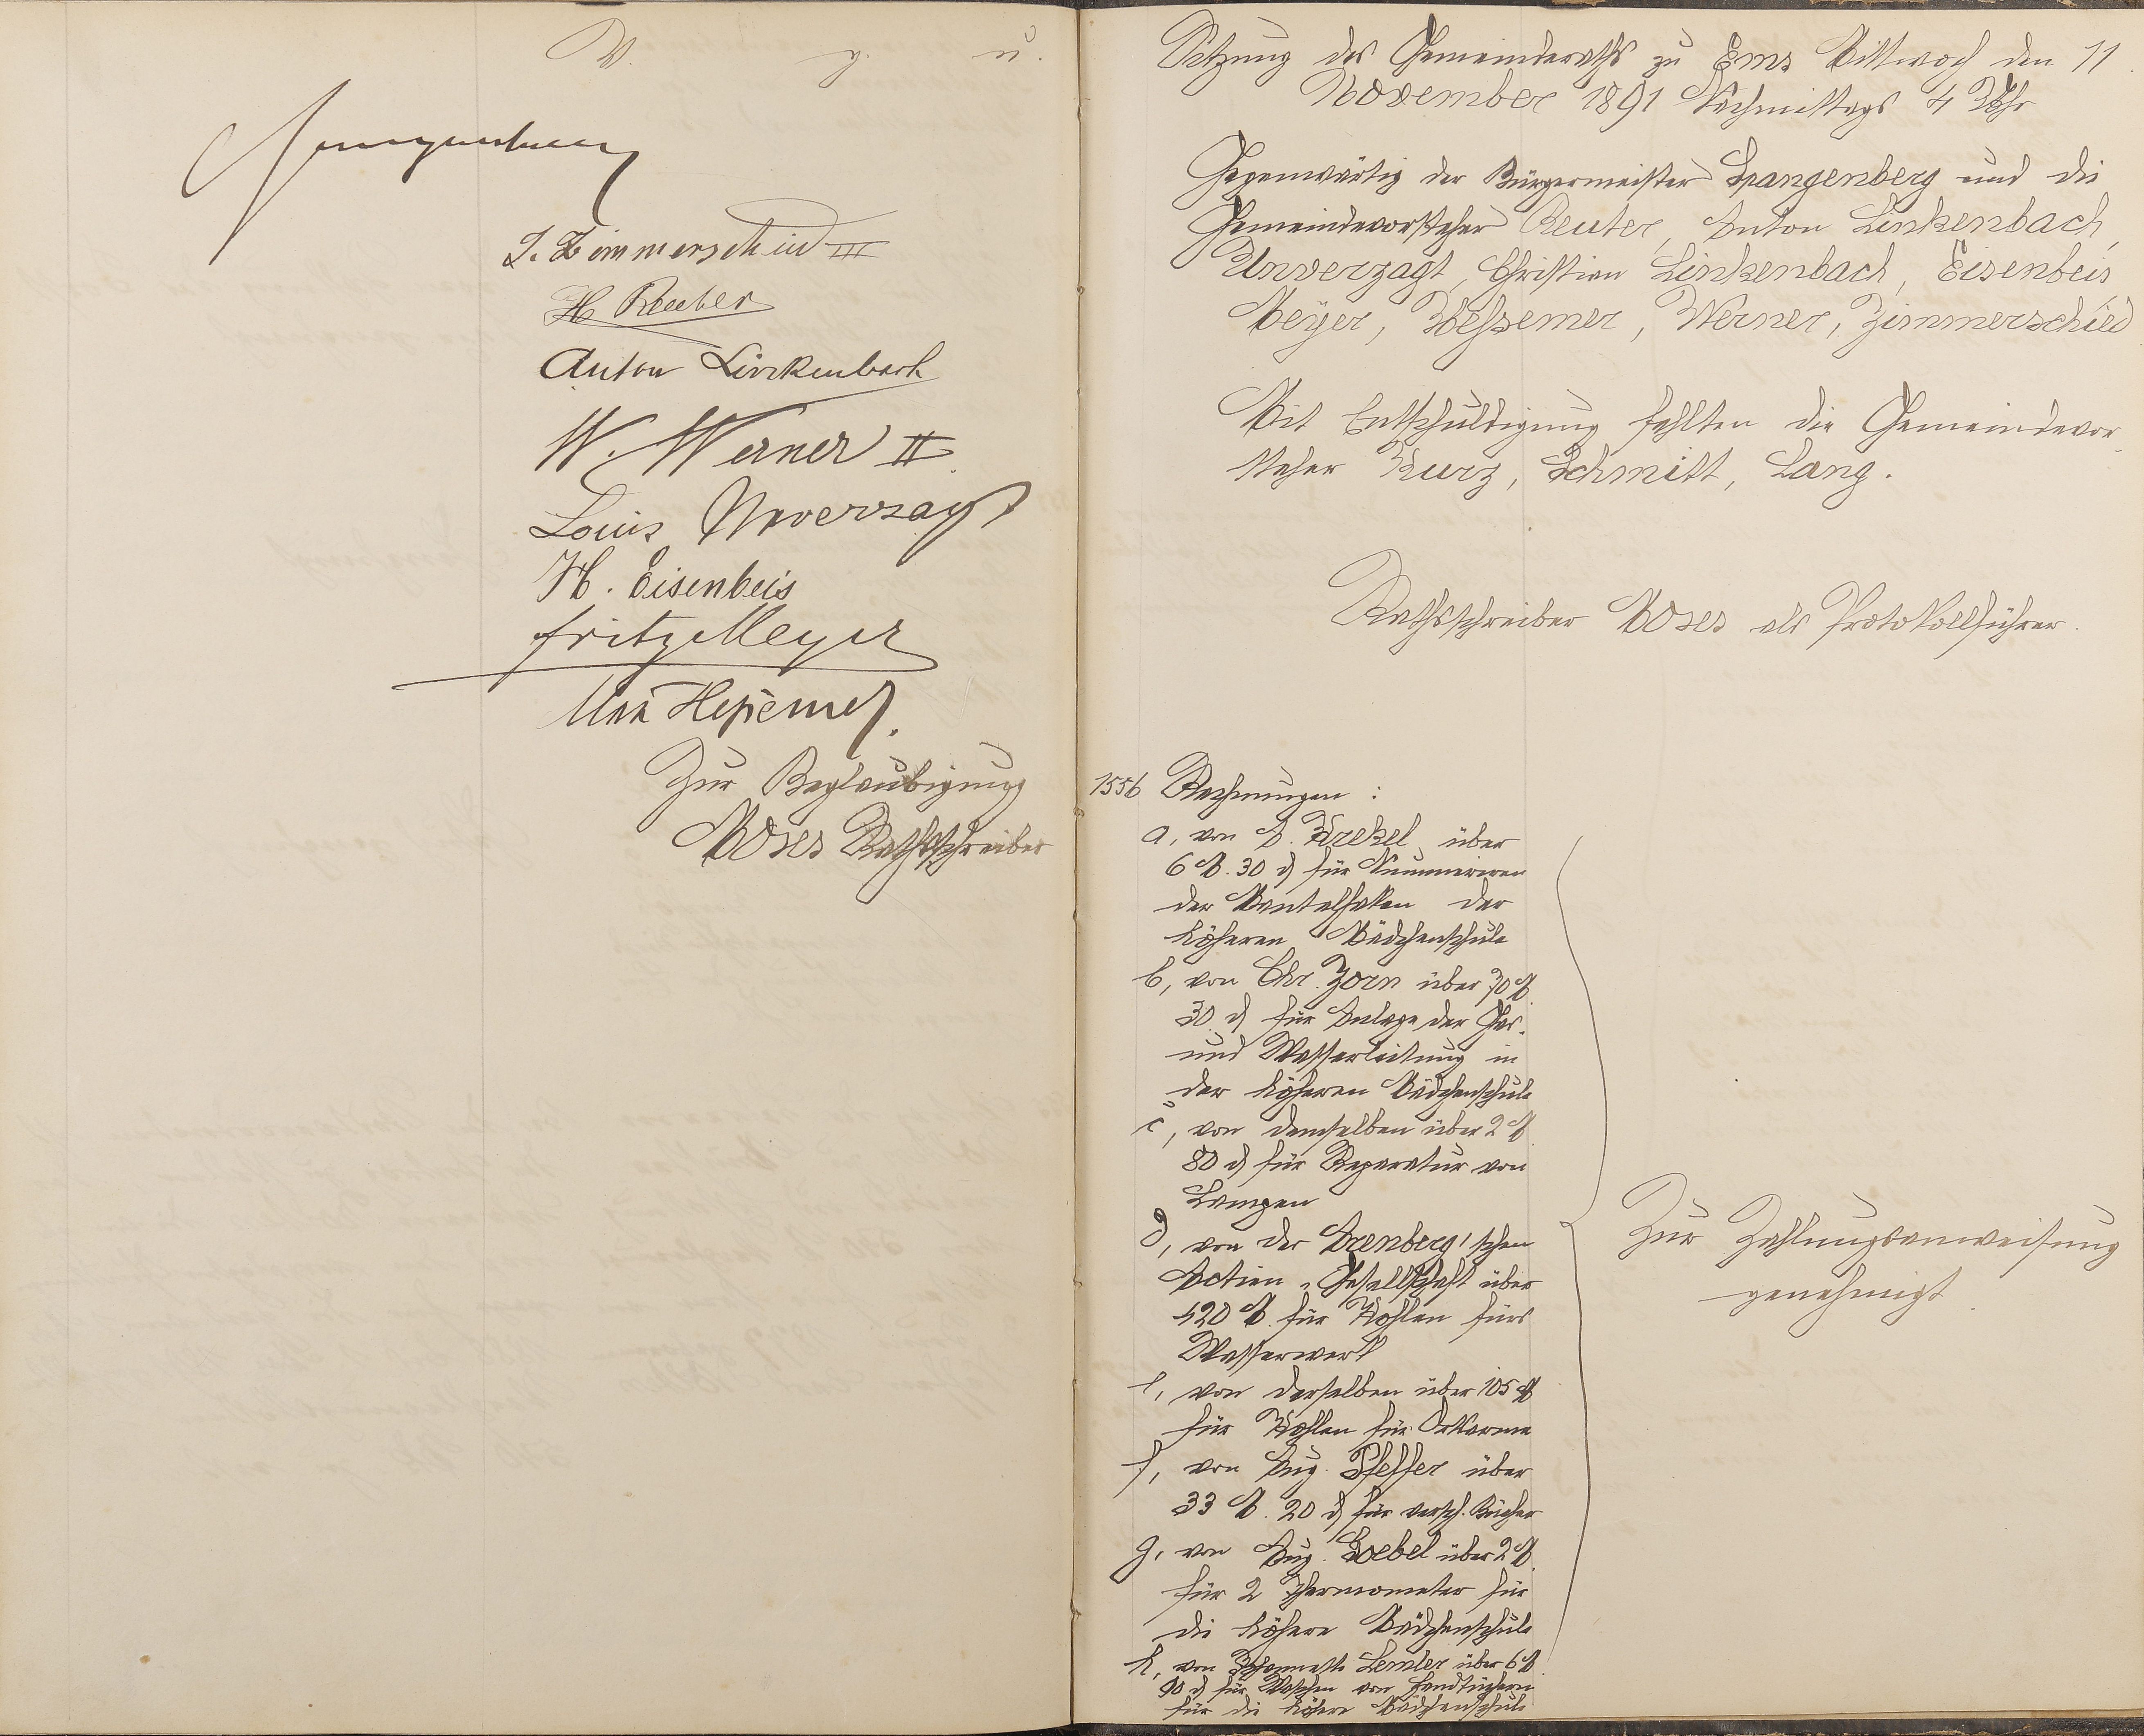 V. g. u.
Spangenberg
J. Zimmerschied III
H Reuter
Anton Linckenbach
W. Werner II
Louis Unverzagt
H. Eisenbeis
Fritz Meyer
Max Heßemer.
Zur Beglaubigung
Moses Rathsschreiber
Sitzung des Gemeinderaths zu Ems Mittwoch den 11.
November 1891 Nachmittags 4 Uhr
Gegenwärtig der Bürgermeister Spangenberg und die
Gemeindevorsteher Reuter, Anton Linkenbach,
Unverzagt, Christian Linkenbach, Eisenbeis,
Meyer, Heßemer, Werner, Zimmerschied
Mit Entschuldigung fehlten die Gemeindevor-
steher Kurz, Schmitt, Lang.
Rathsschreiber Moses als Protokollführer.
1556 Rechnungen:
a, von A. Krekel über
6 M. 30 d für Nummeriren
der Mantelhaken der
höheren Mädchenschule
b, von Chr. Zorn über 70 M.
30 d für Anlage der Gas-
und Wasserleitung in
der höheren Mädchenschule
c, von demselben über 2 M.
80 d für Reparatur von
Lampen
d, von der Arenberg'schen
Actien-Gesellschaft über
420 M. für Kohlen fürs
Wasserwerk
e, von derselben über 105 M
für Kohlen für Ortsarme
f, von Aug. Pfeffer über
33 M. 20 d für versch. Bücher
g, von Aug. Goebel über 2 M.
für 2 Thermometer für
die höhere Mädchenschule
h, von Lemler über 6 M.
90 d für Waschen von Handtüchern
für die höhere Mädchenschule
Zur Zahlungsanweisung
genehmigt.